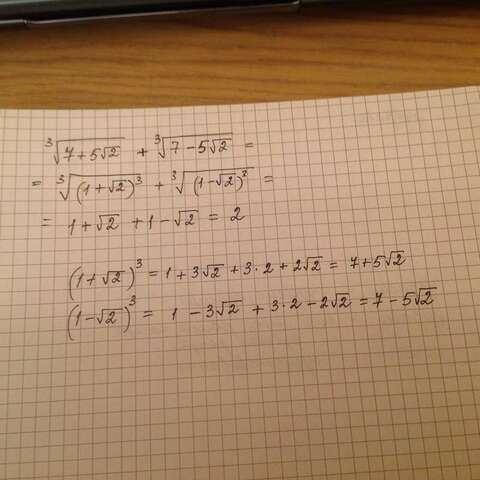 ∛(7+5√2) + ∛(7-5√2) =
= ∛((1+√2)³) + ∛((1-√2)³) =
= 1+√2 +1-√2 = 2
(1+√2)³ = 1+3√2+3·2+2√2 = 7+5√2
(1-√2)³ = 1 -3√2 +3·2-2√2 = 7-5√2